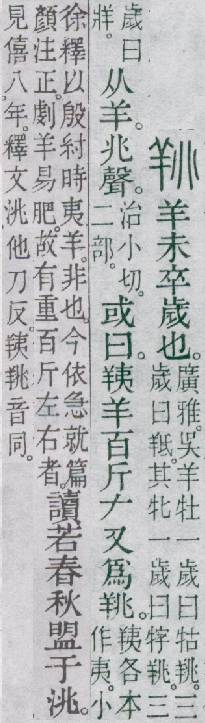 䍮 羊未卒歲也。廣雅。吳羊牡一歲曰牯䍮。三
歲曰羝。其牝一歲曰牸䍮。三
歲曰
牂。从羊。兆聲。治小切。
二部。或曰。羠羊百斤ナ又爲䍮。羠各本
作夷。小
徐釋以殷紂時夷羊。非也。今依急就篇
顏注正。劇羊易肥。故有重百斤左右者。讀若春秋盟于洮。
見僖八年。釋文洮他刀反。羠䍮音同。